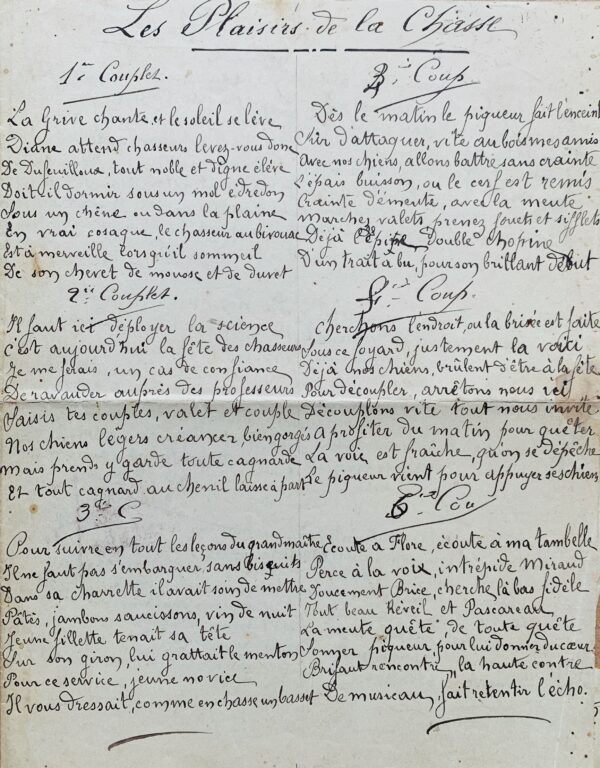 Les Plaisirs de la Chasse
1er Couplet.
La Grive chante, et le soleil se lève
Diane attend chasseurs levez-vous donc
De Dufouilloux, tout noble et digne élève
Doit-il dormir sous un mol édredon
Sous un chêne ou dans la plaine
En vrai cosaque, le chasseur au bivouac
Est à merveille lorsqu'il sommeil
De son chevet de mousse et de duvet
2e Couplet.
Il faut ici déployer la science
C'est aujourd'hui la fête des chasseurs
Je me ferais, un cas de confiance
De ravauder auprès des professeurs
Saisis tes couples, valet et couple
Nos chiens légers créancer bien gorgés
Mais prends y garde toute cagnarde
Et tout cagnard au chenil laisse à part
3e C
Pour suivre en tout les leçons du grand maître
Il ne faut pas s'embarquer sans bisquits
Dans sa charrette il avait soin de mettre
Pâtés, jambons saucissons, vin de nuit
Jeune fillette tenait sa tête
Sur son giron, lui grattait le menton
Pour ce service, jeune novice
Il vous dressait, comme en chasse un basset
Coup
Dès le matin le piqueur fait l'enceint
Sûr d'attaquer, vite au bois mes amis
Avec nos chiens, allons battre sans crainte
L'épais buisson, ou le cerf est remis
Crainte d'émeute, avec la meute
Marchez valets prenez fouets et sifflets
Déjà l'Épine Double chopine
D'un trait à bu, pour son brillant début
Coup.
Cherchons l'endroit, ou la brisée est faite
Sous ce foyard, justement la voici
Déjà nos chiens, brûlent d'être à la fête
Pour découpler, arrêtons nous ici
Découplons vite tout nous invite
A profiter du matin pour quêter
La voie est fraîche, qu'on se dépêche
Le piqueur vient pour appuyer ses chiens
6e Cou
Écoute à Flore, écoute à ma tambelle
Perce à la voix, intrépide Miraud
Doucement Brice, cherche là bas fidèle
Tout beau Réveil et Pascareau
La meute quête, de toute quête
Sonner piqueur, pour lui donner du cœur
Brifaut rencontre la haute contre
De musicau, fait retentir l'écho.